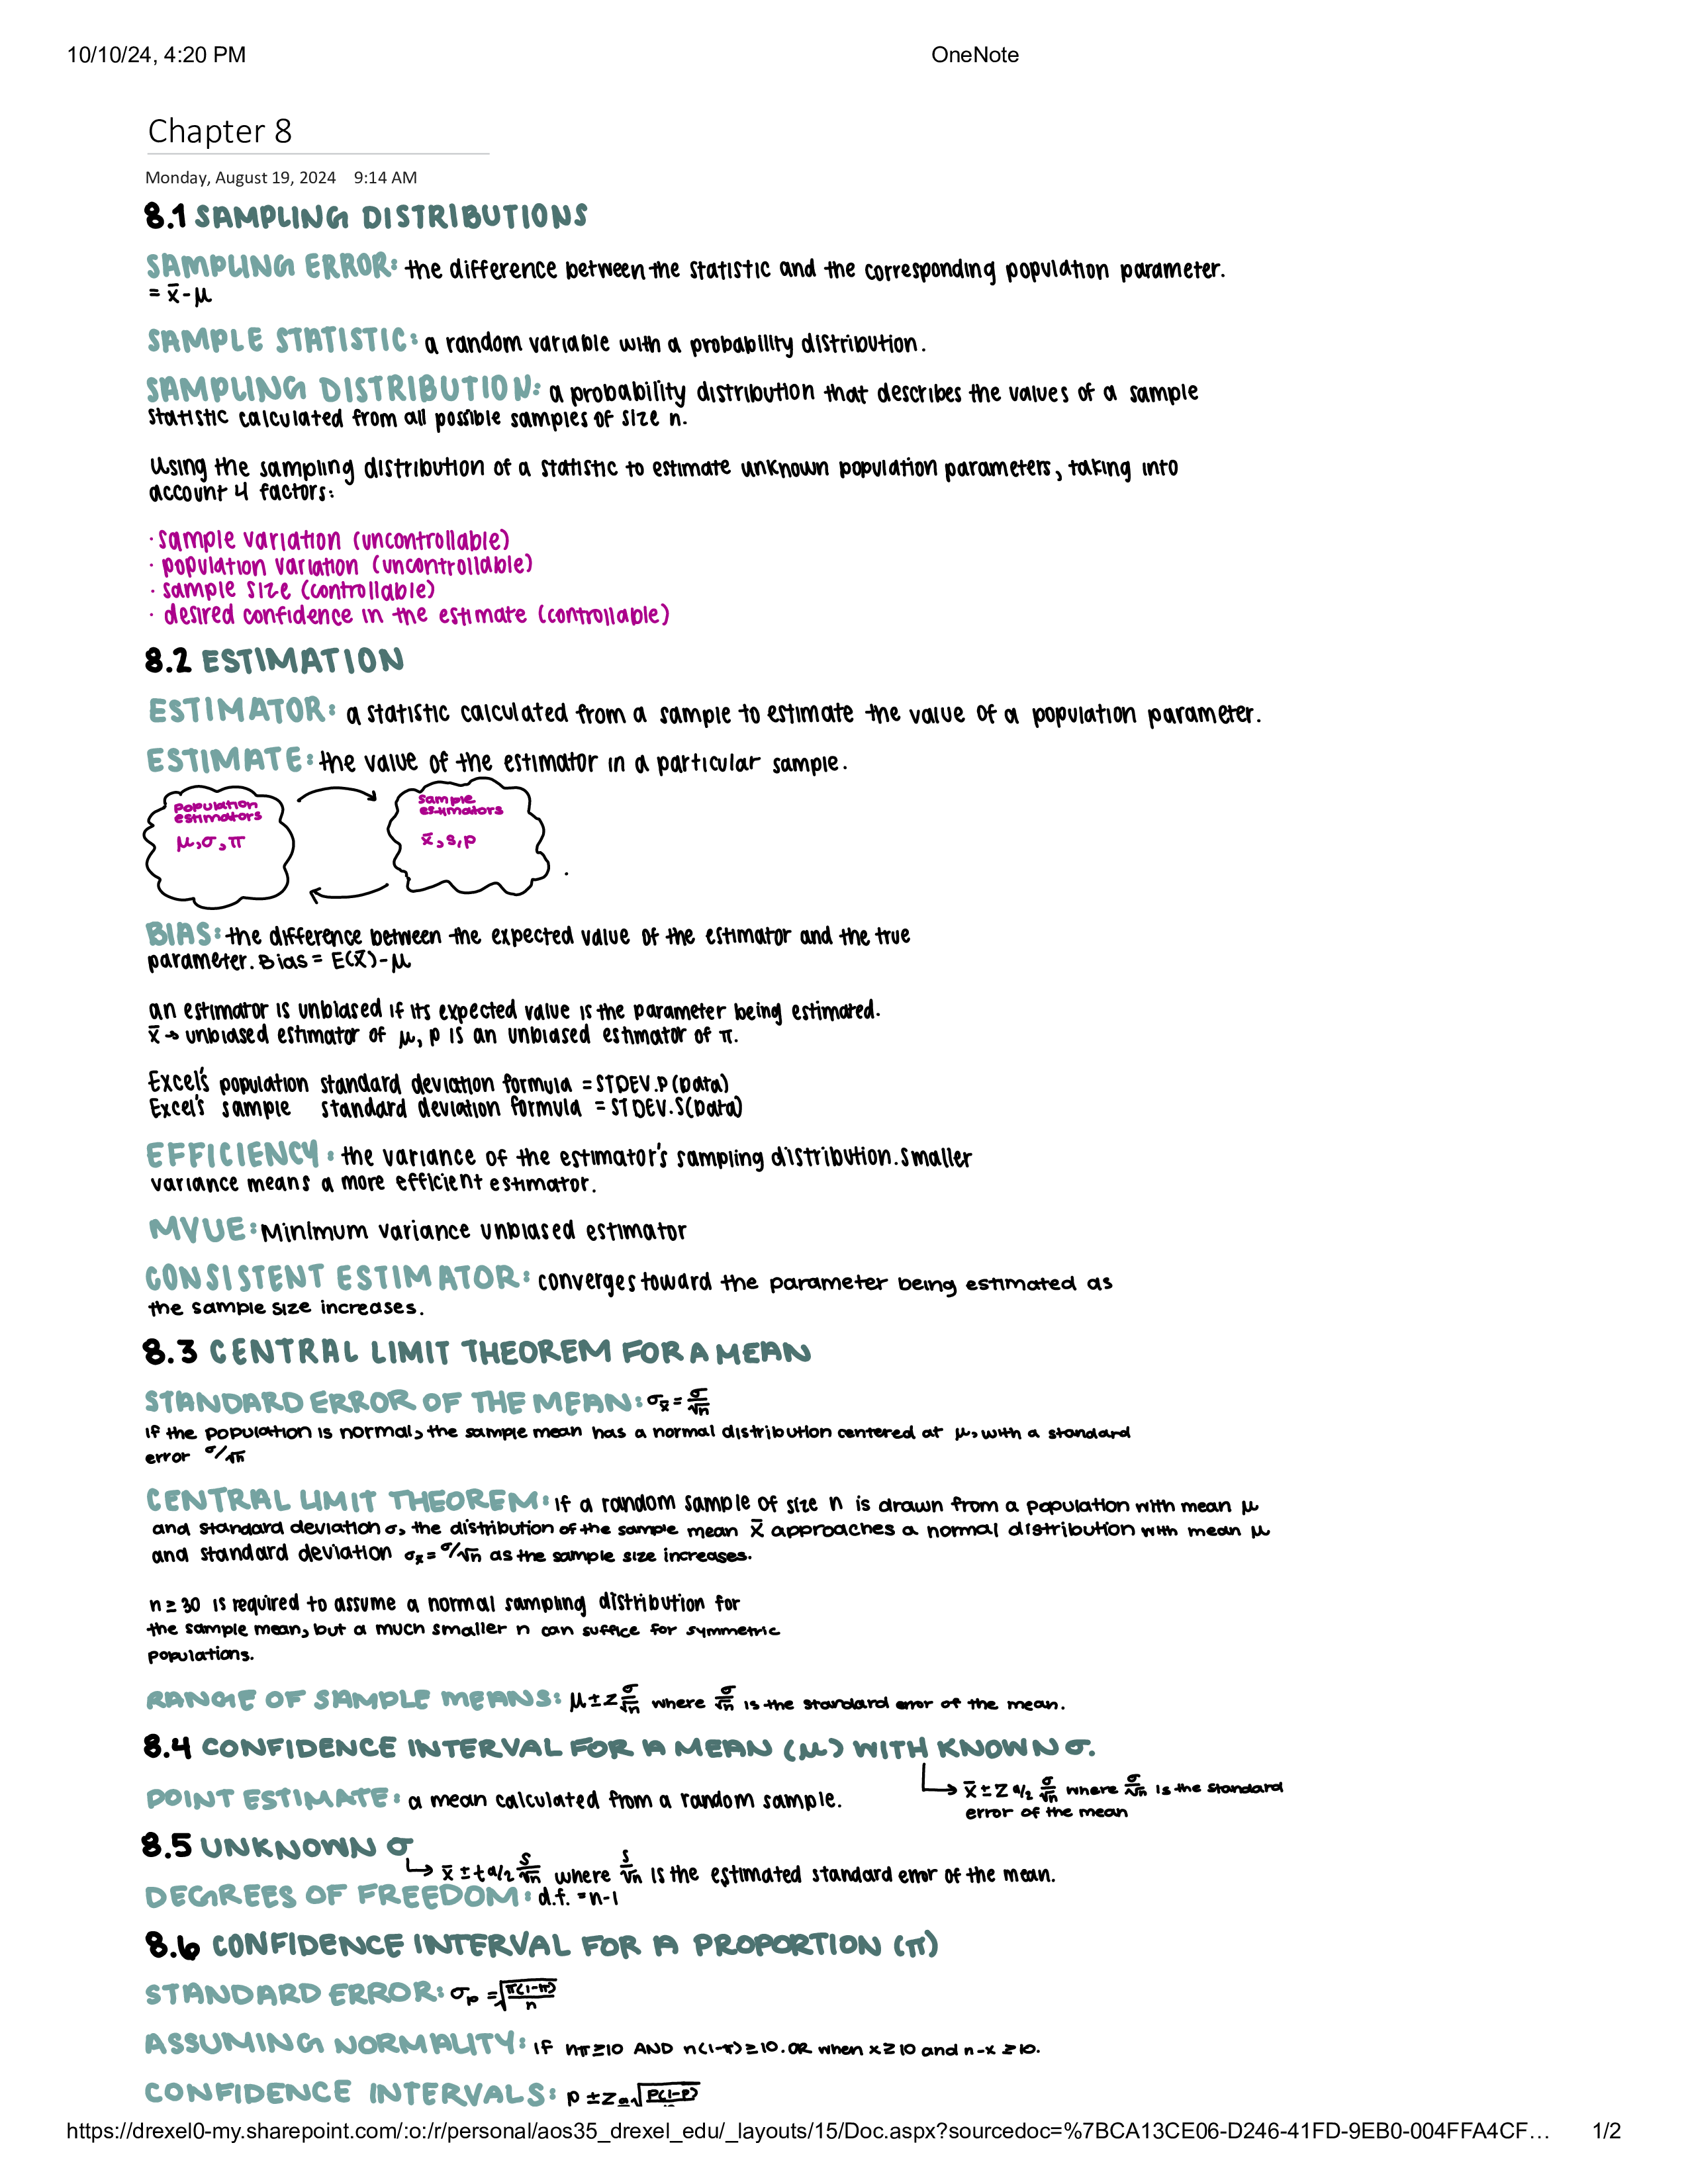 10/10/24, 4:20 PM OneNote
Chapter 8
Monday, August 19, 2024 9:14 AM
8.1 SAMPLING DISTRIBUTIONS
SAMPLING ERROR: the difference between the statistic and the corresponding population parameter.
= x̄ - μ
SAMPLE STATISTIC: a random variable with a probability distribution.
SAMPLING DISTRIBUTION: a probability distribution that describes the values of a sample
statistic calculated from all possible samples of size n.
Using the sampling distribution of a statistic to estimate unknown population parameters, taking into
account 4 factors:
· sample variation (uncontrollable)
· population variation (uncontrollable)
· sample size (controllable)
· desired confidence in the estimate (controllable)
8.2 ESTIMATION
ESTIMATOR: a statistic calculated from a sample to estimate the value of a population parameter.
ESTIMATE: the value of the estimator in a particular sample.
population
estimators
μ, σ, π
sample
estimators
x̄, s, p
BIAS: the difference between the expected value of the estimator and the true
parameter. Bias = E(x̄) - μ
an estimator is unbiased if its expected value is the parameter being estimated.
x̄ → unbiased estimator of μ, p is an unbiased estimator of π.
Excel's population standard deviation formula = STDEV.P(Data)
Excel's sample standard deviation formula = STDEV.S(Data)
EFFICIENCY: the variance of the estimator's sampling distribution. smaller
variance means a more efficient estimator.
MVUE: Minimum variance unbiased estimator
CONSISTENT ESTIMATOR: converges toward the parameter being estimated as
the sample size increases.
8.3 CENTRAL LIMIT THEOREM FOR A MEAN
STANDARD ERROR OF THE MEAN: σx̄ = σ/√n
if the population is normal, the sample mean has a normal distribution centered at μ, with a standard
error σ/√n
CENTRAL LIMIT THEOREM: if a random sample of size n is drawn from a population with mean μ
and standard deviation σ, the distribution of the sample mean x̄ approaches a normal distribution with mean μ
and standard deviation σx̄ = σ/√n as the sample size increases.
n ≥ 30 is required to assume a normal sampling distribution for
the sample mean, but a much smaller n can suffice for symmetric
populations.
RANGE OF SAMPLE MEANS: μ ± z σ/√n where σ/√n is the standard error of the mean.
8.4 CONFIDENCE INTERVAL FOR A MEAN (μ) WITH KNOWN σ.
x̄ ± z α/2 σ/√n where σ/√n is the standard
error of the mean
POINT ESTIMATE: a mean calculated from a random sample.
8.5 UNKNOWN σ
x̄ ± t α/2 s/√n where s/√n is the estimated standard error of the mean.
DEGREES OF FREEDOM: d.f. = n-1
8.6 CONFIDENCE INTERVAL FOR A PROPORTION (π)
STANDARD ERROR: σp = √(π(1-π)/n)
ASSUMING NORMALITY: if nπ ≥ 10 AND n(1-π) ≥ 10. OR when x ≥ 10 and n-x ≥ 10.
CONFIDENCE INTERVALS: p ± z √p(1-p)
https://drexel0-my.sharepoint.com/:o:/r/personal/aos35_drexel_edu/_layouts/15/Doc.aspx?sourcedoc=%7BCA13CE06-D246-41FD-9EB0-004FFA4CF… 1/2